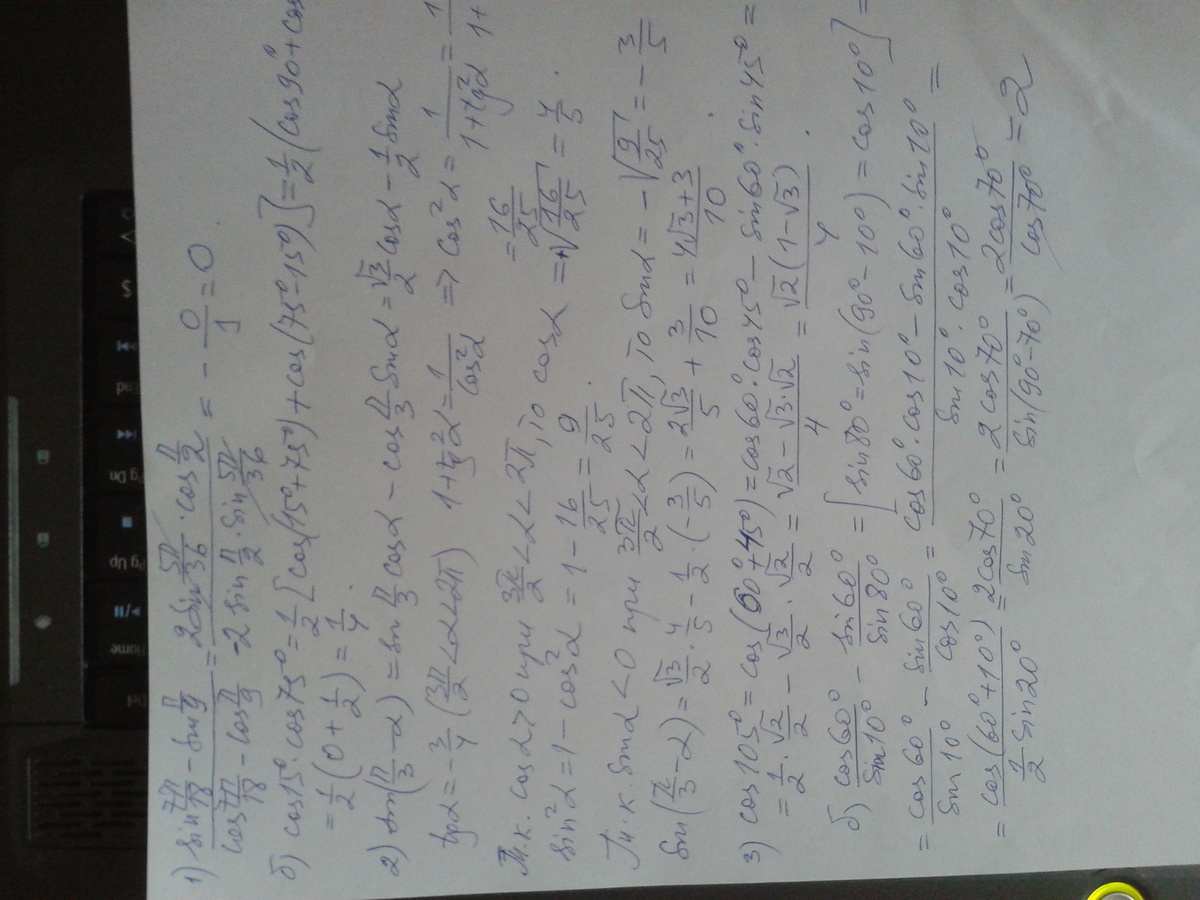 1) (sin 7π/18 - sin π/9)/(cos 7π/18 - cos π/9) = (2 sin 5π/36 · cos π/2)/(-2 sin π/2 · sin 5π/36) = - 0/1 = 0.
б) cos15° · cos75° = 1/2 [cos(15°+75°) + cos(75°-15°)] = 1/2 (cos90° + cos
= 1/2 (0 + 1/2) = 1/4.
2) sin(π/3 - α) = sin π/3 cosα - cos π/3 sinα = √3/2 cosα - 1/2 sinα
tgα = -3/4 (3π/2 < α < 2π) 1 + tg²α = 1/cos²α => cos²α = 1/(1+tg²α) = 1/1+
= 16/25
Т.к. cosα > 0 при 3π/2 < α < 2π, то cosα = +√(16/25) = 4/5.
sin²α = 1 - cos²α = 1 - 16/25 = 9/25.
Т.к. sinα < 0 при 3π/2 < α < 2π, то sinα = -√(9/25) = -3/5
sin(π/3 - α) = √3/2 · 4/5 - 1/2 · (-3/5) = 2√3/5 + 3/10 = (4√3+3)/10.
3) cos105° = cos(60°+45°) = cos60° · cos45° - sin60° · sin45° =
= 1/2 · √2/2 - √3/2 · √2/2 = (√2 - √3·√2)/4 = √2(1-√3)/4.
б) cos60°/sin10° - sin60°/sin80° = [sin80° = sin(90°-10°) = cos10°] =
= cos60°/sin10° - sin60°/cos10° = (cos60° · cos10° - sin60° · sin10°)/(sin10° · cos10°) =
= cos(60°+10°)/(1/2 sin20°) = 2cos70°/sin20° = 2cos70°/sin(90°-70°) = 2cos70°/cos70° = 2
Del
Home
Pg Up
Pg Dn
End